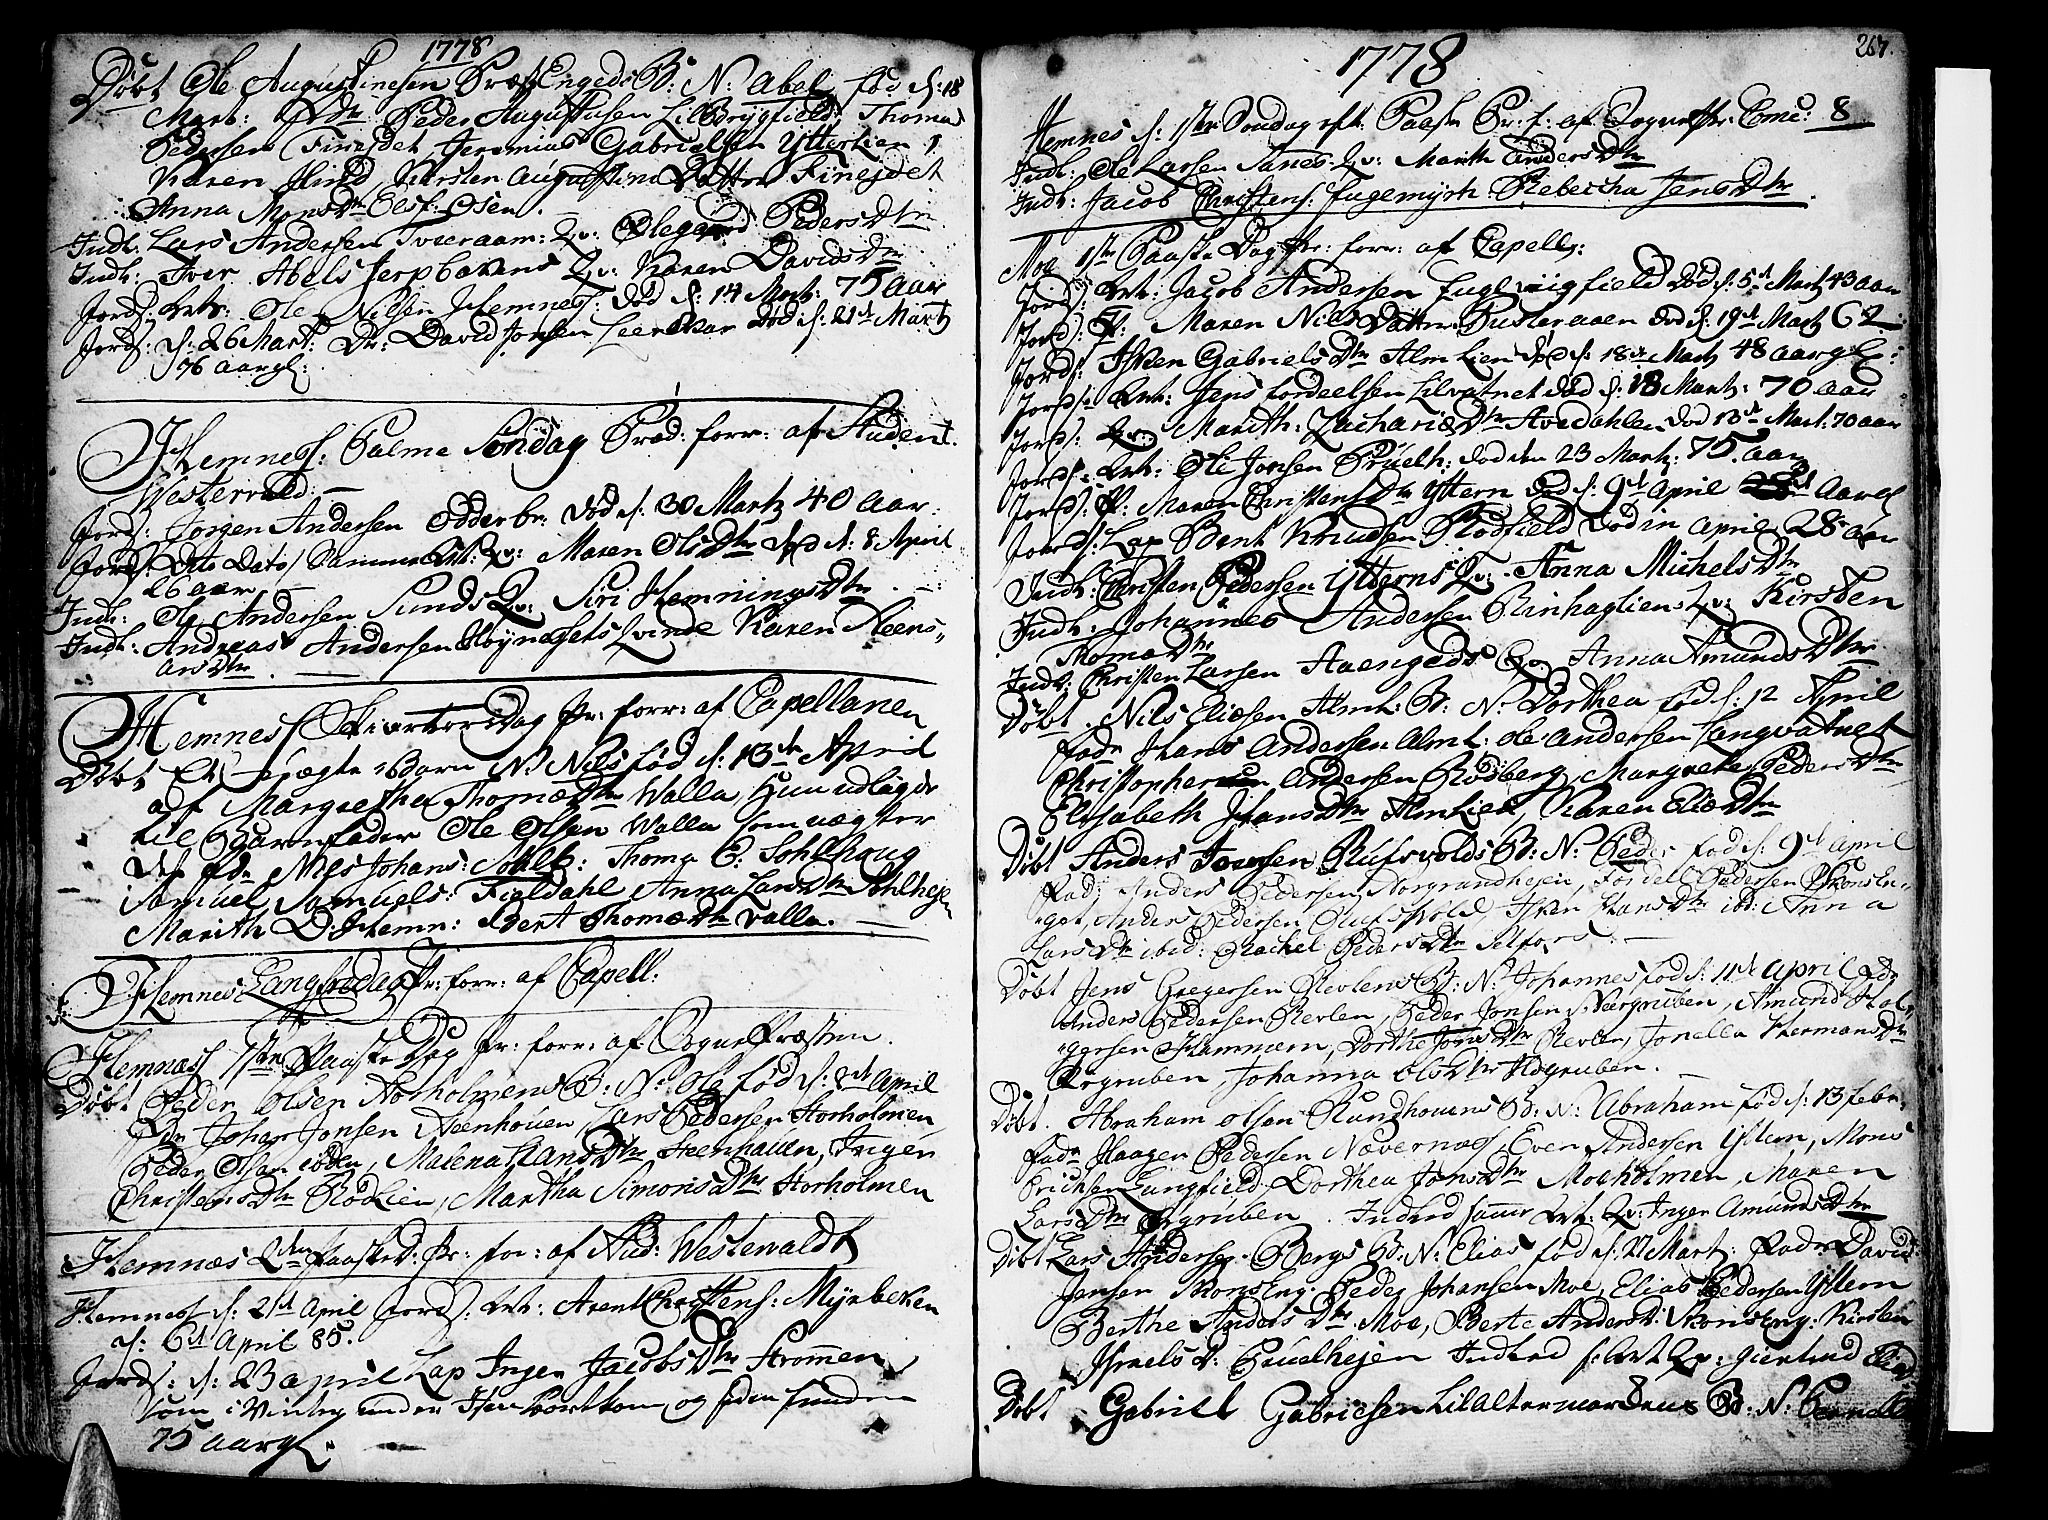 1778
Døbt Ole Augustinesen Præst Engeds B: N: Abel, fød d: 18
Mart: Fadr: Peder Augustusen Lilbrygfield, Thomas
Pedersen Finejdet, Jeremias Gabrielsen Ytterlien,
Karen Hind, Kirsten Augustini Datter Finejdet
Anna MonsDtr Olsf: Osen.
Indl. Lars Andersen Tveraaen: Qv: Olegaard PedersDtr
Indl: Iver Abels Jerpbakens Qv: Karen DavidsDtr
Jords: Krt: Ole Nilsen Hemnes: død d: 14 Mart: 75 Aar
Jords: d: 26 Mart: Dr: David Jonsen Leerskar død d: 21 d Martz
76 aar gl:
Hemness: Palme Søndag Præd: forr: af Student
Westervald:
Jords: Jørgen Andersen Odderbr: død d: 30 Martz 40 Aar.
Jords: Dito Dato Qv: Maren OlsDtr død d: 8 April
26 aar
Indl: Ole Andersen Sunds Qv: Siri HemningsDtr
Indl: Andreas Andersen Høynesets Qvinde Karen Steens
arsDtr
Hemness Skiærtorsdag Pr: forr: af Capellanen
Døbt Et uægte Barn N: Nils fød d: 13de April
af Margrethe ThomæDtr Walla, Hun udlagde
til Barnefader Ole Olsen Walla som nægter
Det fdr Niels Johans: Sohlb: Thoma C: Sohlhoug
Samuel Samuels: Fieldahl Anna LarsDtr Sohlhejen
Marith D: Hemn: Idert ThomæDtr Valla.
Hemnes Langfredag Pr: forr: af Capell:
Hemness 1ste Paaske Dag Pr: forr: af Sogne Præsten.
Døbt Peder Olsen Storholmens B: N: Ole fød d: 2d April
Fdr Johan Jonsen Steenhouen, Lars Pedersen Storholmen
Peder Olsen ibden, Malena HansDtr Steenhauen, Inger
ChristensDtr Rødlien, Martha SimonsDtr Storholmen
Hemnæs 2den Paaske D: Pr: for: af Stud: Westewaldt
Hemness d: 21d April Jords: Krt: Arent Christens: Myrbeken
d: 6d April 85.
Jords: d: 23 april Lap Inger JacobsDtr Strømen
som i Vinter under Isen bortkom og siden funden
75 aar gl:
1778
267.
Hemnes d: 1ste Søndag eft: Paask Pr: f: af Sognepr: Comc: 8
Indl: Ole Larsen Sanes: Qv: Marith AndersDtr
Indl: Jacob Christens: Fuglemyrh Rebecha JensDtr
Moe 1ste Paaske Dag Pr: forr: af Capell:
Jords: Krt: Jacob Andersen Fuglviigfield død d: 5d Martz 43 aar
Jords: P: Maren Nils Datter Busteraaen død d: 19d Martz 62
Jords: Isken GabrielsDtr Almlien død d: 18d Martz 48 aar gl:
Jords: Krt: Jens Fordelsen Lilvatnet død d: 18 Martz: 70 aar
Jords: Qv: Marith: ZachariæDtr Avedahlen død 13d Mart: 70 aar
Jords: Krt: Ole Jonsen Bruelh: død den 23 Martz: 75 aar
Jords: P: Maren ChristensDtr Yttern død d: 9d April Aar gl
Jords: Lap Bent Knudsen Rødfield Død in April 28 aar
Indl: Christen Pedersen Ytterns Qv: Anna MichelsDtr
Indl: Johannes Andersen Binhagliens Qv: Kirsten
ThomæDtr
Indl: Christen Larsen Aaengeds Qv: Anna AmundsDtr
Døbt. Nils Eliæsen Almh: B: N: Dorthea fød d: 12 April
Fadr Hans Andersen Almh: Ole Andersen Langvatnet
Christopher Andersen Rødberg, Margrete PedersDtr
Elisabeth HansDtr Almlien, Karen EliæDtr
Døbt Anders Iversen Rufsvolds B: N: Peder fød d: 9d April
Fad: Anders Pedersen Norgrandhejen, Fordell Pedersen Skonsen-
get, Anders Pedersen Rufsvold, Isken HansDtr ibd: Anna
LarsDtr ibid: Rachel PedersDtr Selfors.
Døbt Jens Gregersen Revlens B: N: Johannes fød d: 11d April Fdr
Anders Pedersen Revlen, Peder Jonsen Nærgruben, Amund Hol-
gersen Hammern, Dorthe JonsDtr Revlen, Jonella HermansDtr
Ørgruben, Johanna OlsDtr Hørgruben.
Døbt. Abraham Olsen Rundhouens B: N: Abraham fød d: 13 Febr:
Fadr Haagen Pedersen Nævernæs, Even Andersen Yttern, Mons
Ericksen Lungfield, Dorthea JonsDtr Moeholmen, Maren
LarsDtr Ørgruben. Indled samme Krt: Qv: Inger AmundsDtr
Døbt Lars Andersen Bergs B: N: Elias fød d: 27 Mart: Fadr David
Jensen Skonseng. Peder Johansen Moe, Elias Pedersen Yttern
Berthe AndersDtr Moe, Berte AndersD: Skonseng: Kirsten
Israels D: Bruelhejen Indled s: Krt Qv: Giertrud
Døbt Gabriel Gabrielsen Lilaltermarkens B: N: